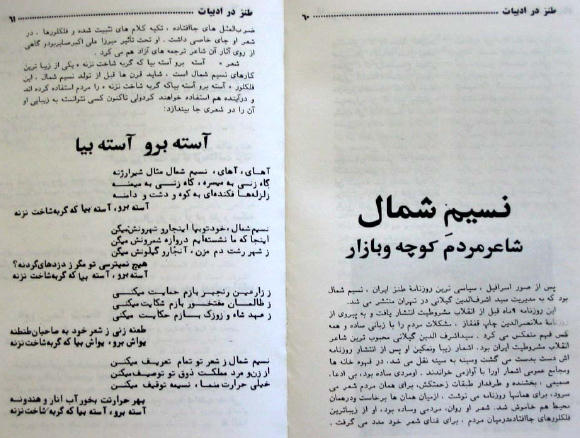 طنز در ادبیات
۶۰
نسیم شمال
شاعر مردم کوچه وبازار
پس از صور اسرافیل ، سیاسی ترین روزنامهٔ طنز ایران ، نسیم شمال
بود که به مدیریت سید اشرف‌الدین گیلانی در تهران منتشر می شد.
این روزنامه ۹ماه قبل از انقلاب مشروطیت انتشار یافت و به پیروی از
روزنامهٔ ملانصرالدین چاپ قفقاز . مشکلات مردم را با زبانی ساده و همه
کس فهم منعکس می کرد . سیداشرف الدین گیلانی محبوب ترین شاعر
انقلاب مشروطیت ایران بود . اشعار زیبا ونمکین او پس از انتشار روزنامه
اش دست بدست می گشت وسینه به سینه نقل می شد ، در قهوه خانه ها
ومجامع عمومی اشعار اورا با آوازمی خواندند . اومردی ساده بود ، بی ادعا،
صمیمی ، بخشنده و طرفدار طبقات زحمتکش، برای همان مردم شعر می
سرود، برای همانها روزنامه می نوشت . ازمیان همان ها برخاست ودرهمان
محیط هم خاموش شد. شعر او روان، مردمی وساده بود، او از زیباترین
فلکلورهای جاافتاده‌درمیان مردم ، برای غنای شعر خود مدد می گرفت .
طنز در ادبیات
۶۱
ضرب‌المثل های جاافتاده ، تکیه کلام های تثبیت شده و فلکلورها ، در
شعر او جای خاصی داشت . او تحت تأثیر میرزا علی اکبرصابربودو گاهی
از روی آثار آن شاعر ترجمه های آزاد هم می کرد .
شعر « آسته برو آسته بیا که گربه شاخت نزنه » یکی از زیبا ترین
کارهای نسیم شمال است . شاید قرن ها قبل از تولد نسیم شمال ، این
فلکلور « آسته برو آسته بیاکه گربه شاخت نزنه » را مردم استفاده کرده اند
و درآینده هم استفاده خواهند کردولی تاکنون کسی نتوانسته به زیبایی او
آن را دو شعری جا بیندازد:
آسته برو آسته بیا
آهای، آهای، نسیم شمال مثال شیرارژنه
گاه زنی به میسره ، گاه زنی به میمنه
زلزله‌ها فکنده‌ای به کوه و دشت و دامنه
آسته برو، آسته بیا که گربه شاخت نزنه
نسیم‌شمال،خودتوبپا اینجارو تهرونش میگن
اینجا که ما نشسته‌ایم دروازه شمرونش میگن
ز شهر رشت دم مزن، آنجارو گیلونش میگن
هیچ نمیترسی تو مگر ز دزدهای گردنه؟
آسته برو، آسته بیا که گربه شاخت نزنه
ز زارعین رنجبر بازم حمایت میکنی
ز ظالمان مفتخور بازم شکایت میکنی
ز عهد شاه و زوزک بازم حکایت میکنی
طعنه زنی ز شعر خود به صاحبان طنطنه
یواش برو، یواش بیا که گربه‌شاخت نزنه
نسیم شمال ز شعر تو تمام تعریف میکنن
از زن و مرد مملکت ذوق تو توصیف میکنن
خیلی حرارت منما ، نسیه توقیف میکنن
بهر حرارتت بخور آب انار و هندوونه
آسته برو، آسته بیا، که گربه شاخت نزنه